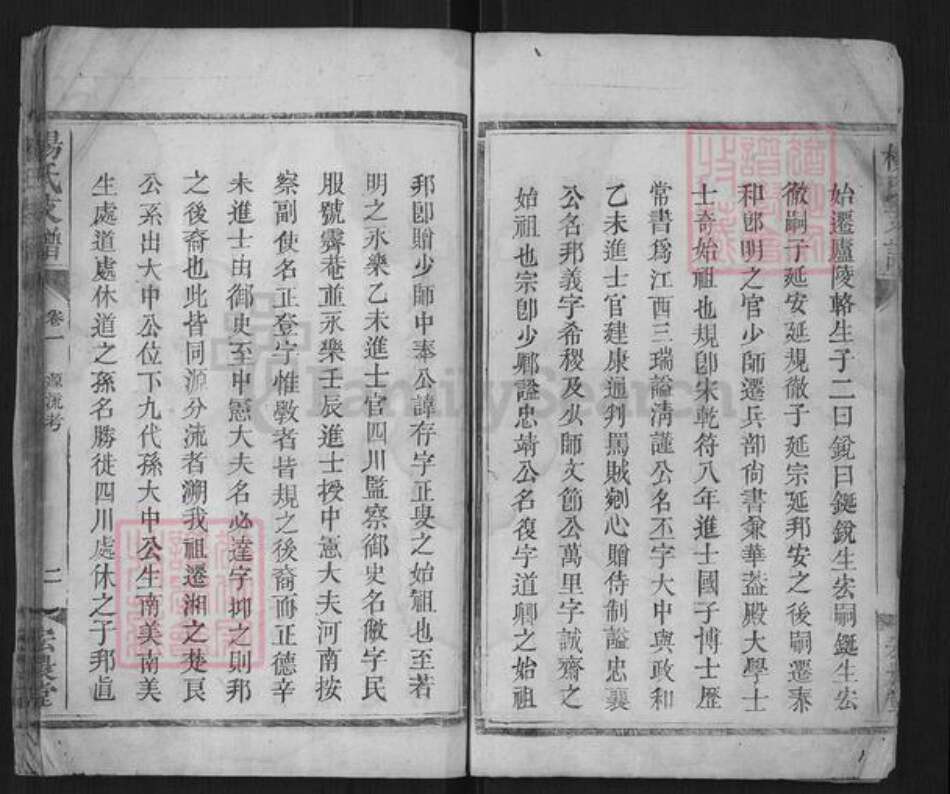 始遷廬陵輅生子二曰銳曰鋋銳生宏嗣鋋生宏
徹嗣子延安延規徹子延宗延邦安之後嗣遷泰
和卽明之官少師遷兵部尙書兼華蓋殿大學士
士奇始祖也規卽宋乾符八年進士國子博士歷
常書爲江西三瑞謚淸謹公名丕字大中與政和
乙未進士官建康通判罵賊剜心贈侍制謚忠襄
公名邦義字希稷及少師文節公萬里字誠齋之
始祖也宗卽少卿謚忠靖公名復字道卿之始祖
邦卽贈少師中奉公諱存字正叟之始祖也至若
明之永樂乙未進士官四川監察御史名斆字民
服號霽菴並永樂壬辰進士授中憲大夫河南按
察副使名正登字惟斆者皆規之後裔而正德辛
未進士由御史至中憲大夫名必達字圳之則邦
之後裔也此皆同源分流者溯我祖遷湘之楚良
公系出大中公位下九代孫大中公生南美南美
生處道處休道之孫名勝徙四川處休之子邦眞
楊氏支譜
卷一
源流考
二
FamilySearch